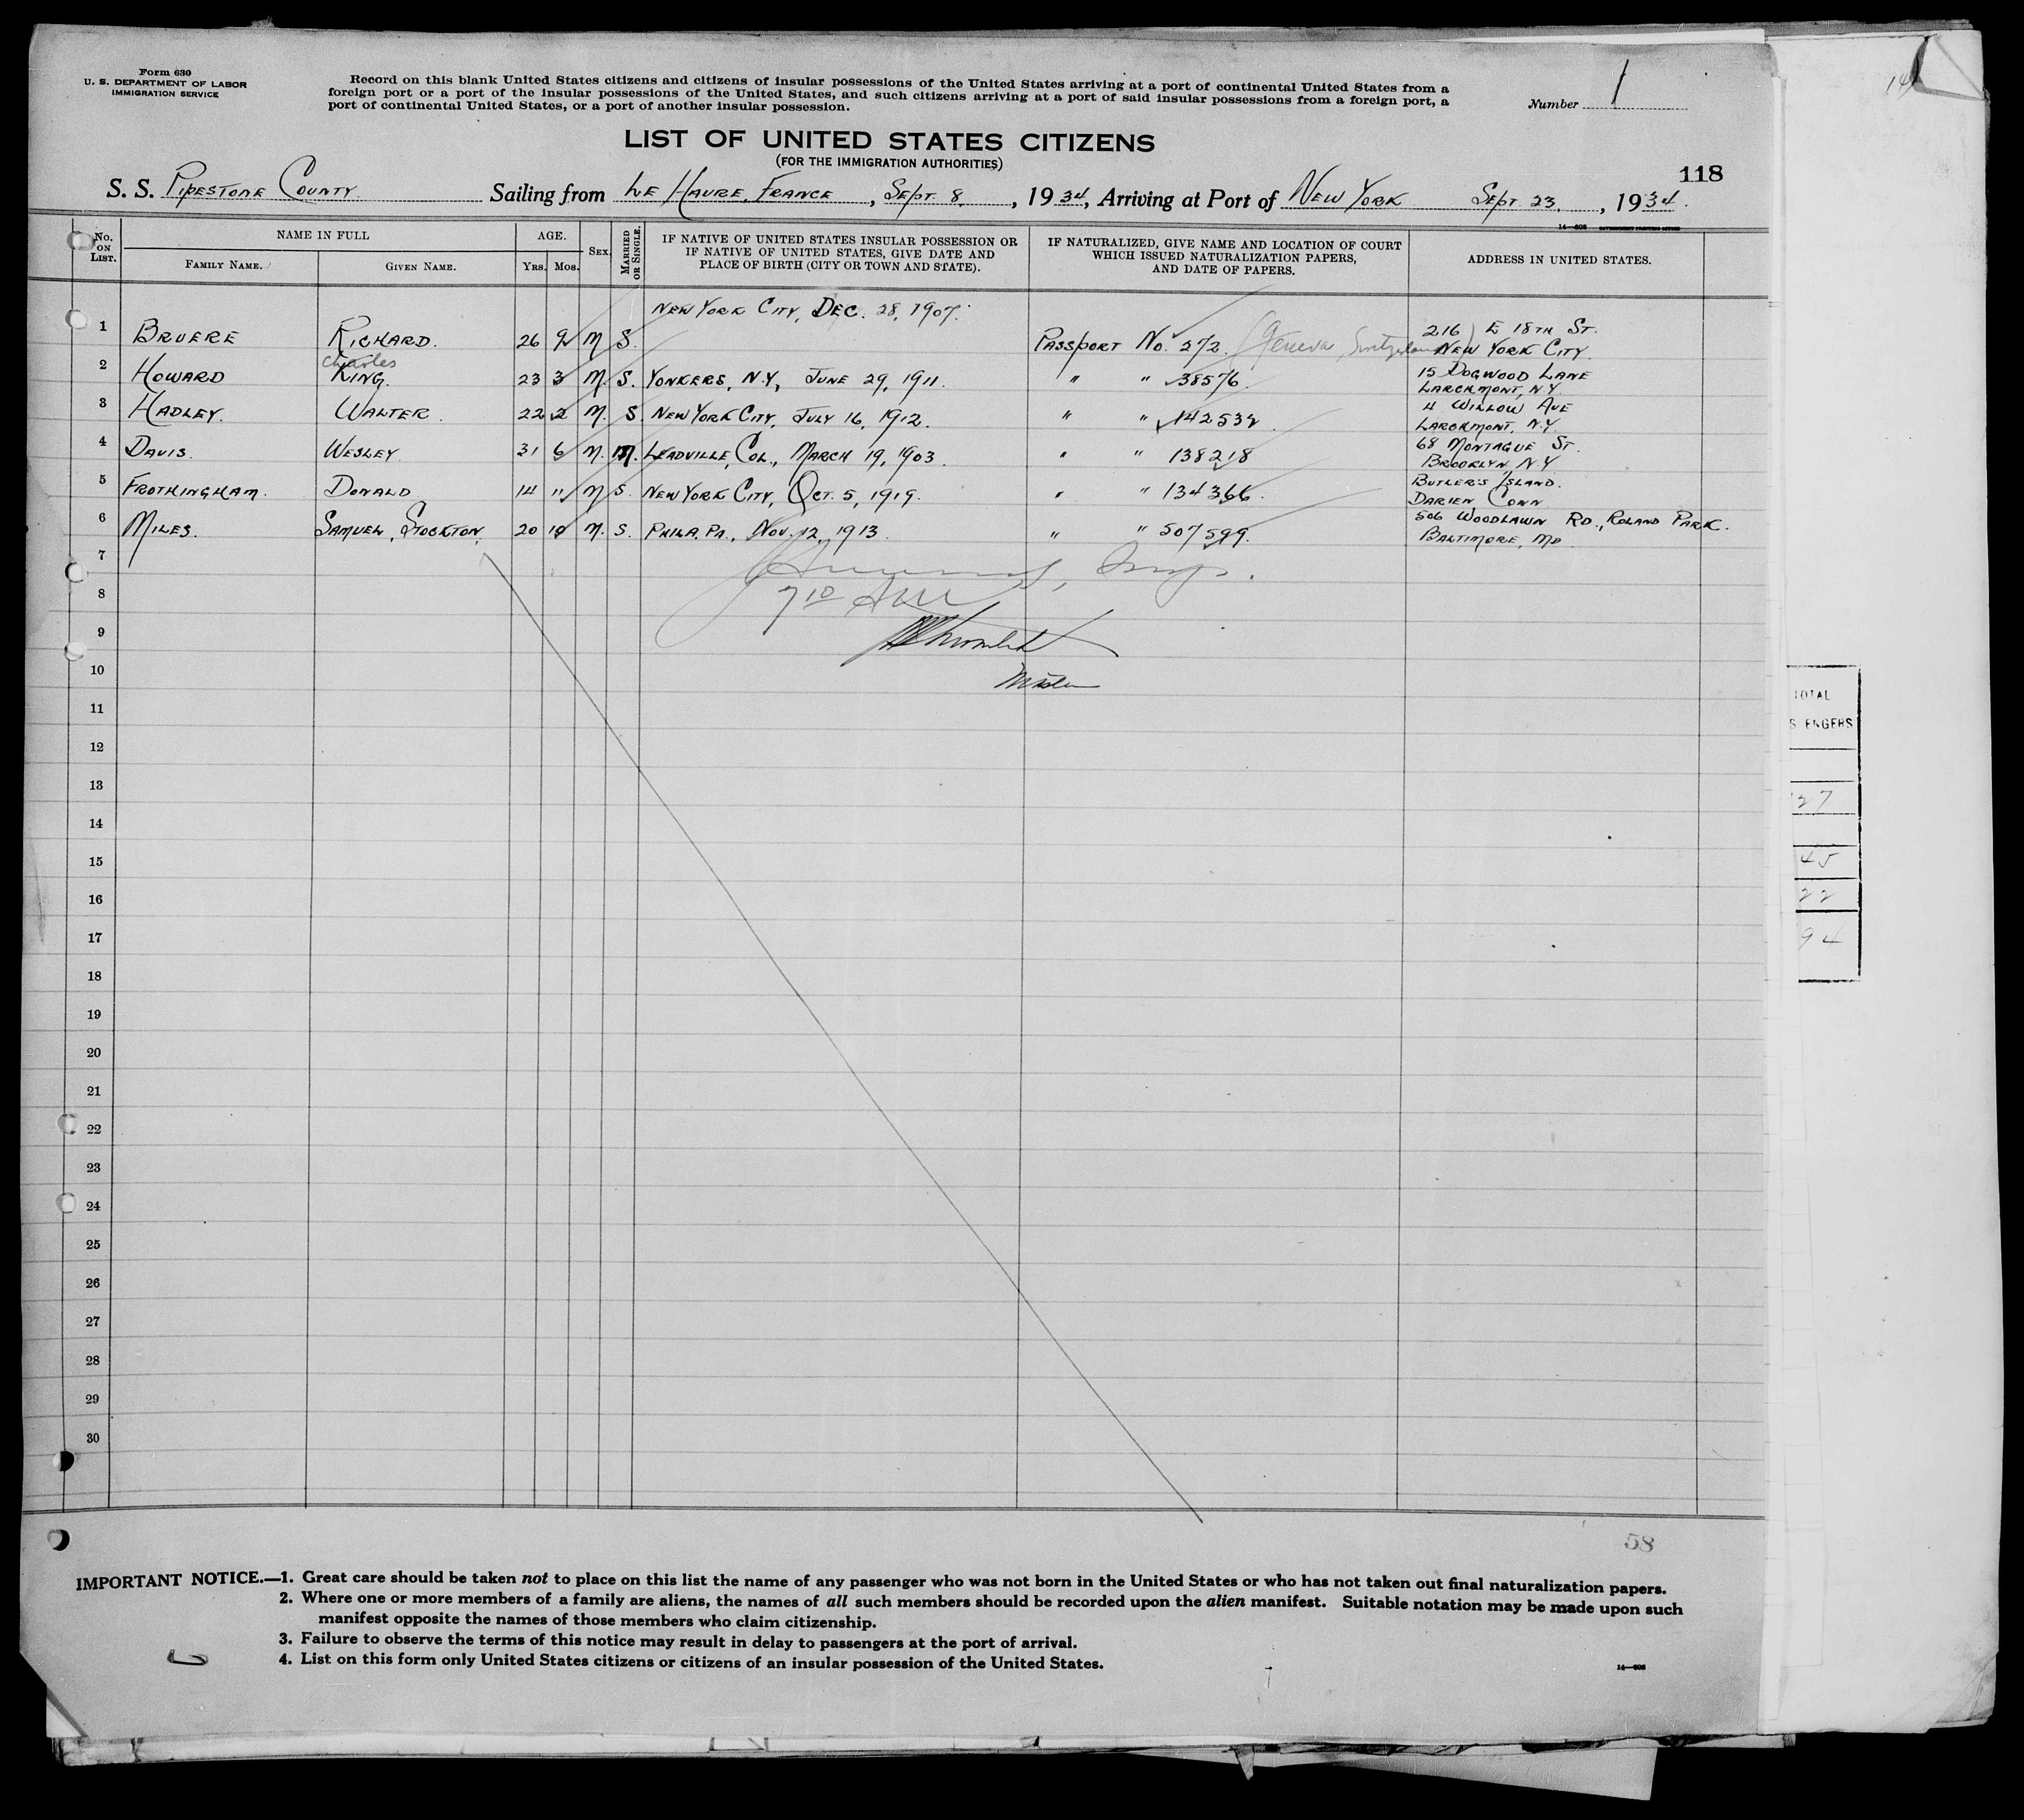 Form 630
U. S. DEPARTMENT OF LABOR
IMMIGRATION SERVICE
Record on this blank United States citizens and citizens of insular possessions of the United States arriving at a port of continental United States from a
foreign port or a port of the insular possessions of the United States, and such citizens arriving at a port of said insular possessions from a foreign port, a
port of continental United States, or a port of another insular possession.
Number 1
LIST OF UNITED STATES CITIZENS
(FOR THE IMMIGRATION AUTHORITIES)
118
S. S. PIPESTONE COUNTY Sailing from LE HAVRE, FRANCE, SEPT. 8, 1934, Arriving at Port of NEW YORK SEPT 23, 1934.
14—608 GOVERNMENT PRINTING OFFICE
No. ON LIST. NAME IN FULL FAMILY NAME. GIVEN NAME. AGE. YRS. MOS. SEX MARRIED OR SINGLE. IF NATIVE OF UNITED STATES INSULAR POSSESSION OR IF NATIVE OF UNITED STATES, GIVE DATE AND PLACE OF BIRTH (CITY OR TOWN AND STATE). IF NATURALIZED, GIVE NAME AND LOCATION OF COURT WHICH ISSUED NATURALIZATION PAPERS, AND DATE OF PAPERS. ADDRESS IN UNITED STATES.
NEW YORK CITY, DEC. 28, 1907.
1 BRUERE RICHARD. 26 9 M S. PASSPORT NO. 272 Geneva, Switzerland 216 E 18TH ST. NEW YORK CITY.
Charles
2 HOWARD KING. 23 3 M. S. YONKERS, N.Y., JUNE 29, 1911. " " 38576. 15 DOGWOOD LANE LARCHMONT, N.Y
3 HADLEY. WALTER. 22 2 M. S. NEW YORK CITY, JULY 16, 1912. " " 142532. 4 WILLOW AVE LARCHMONT, N.Y.
4 DAVIS. WESLEY. 31 6 M. M. LEADVILLE, COL., MARCH 19, 1903. " " 138218 68 MONTAGUE ST. BROOKLYN, N.Y
5 FROTHINGHAM. DONALD 14 11 M S. NEW YORK CITY, OCT. 5, 1919. " " 134366. BUTLER'S ISLAND. DARIEN CONN
6 MILES. SAMUEL, STOCKTON, 20 10 M. S. PHILA, PA., NOV. 12, 1913 " " 507599. 506 WOODLAWN RD., ROLAND PARK. BALTIMORE, MD
7
8
9
10
11
12
13
14
15
16
17
18
19
20
21
22
23
24
25
26
27
28
29
30
58
IMPORTANT NOTICE.—1. Great care should be taken not to place on this list the name of any passenger who was not born in the United States or who has not taken out final naturalization papers.
2. Where one or more members of a family are aliens, the names of all such members should be recorded upon the alien manifest. Suitable notation may be made upon such
manifest opposite the names of those members who claim citizenship.
3. Failure to observe the terms of this notice may result in delay to passengers at the port of arrival.
4. List on this form only United States citizens or citizens of an insular possession of the United States.
14—608
TOTAL
27
45
22
94